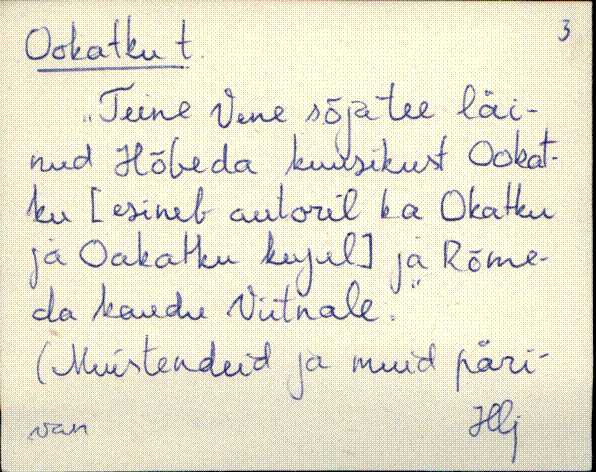 3
Ookatku t.
"Teine Vene sõjatee läi-
nud Hõbeda kuusikust Ookat-
ku [esineb autoril ka Okatku
ja Oakatku kujul] ja Rõme-
da kaudu Viitnale."
(Muistendeid ja muid päri-
van Hlj